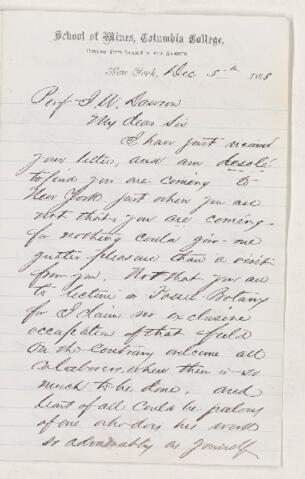 School of Mines, Columbia College,
New York, Dec 5th 1868
Prof J. W. Dawson
My dear Sir
I have just received
your letter, and am desolé
to find you are coming to
New York just when you are
not that you are coming
for nothing could give me
greater pleasure than a visit
from you. Not that you are
to lecture on Fossil Botany
for I claim no exclusive
occupation of that field
On the contrary welcome all
colaborers, where there is so
much to be done, and
least of all could be jealous
of one who does his work
so admirably as yourself